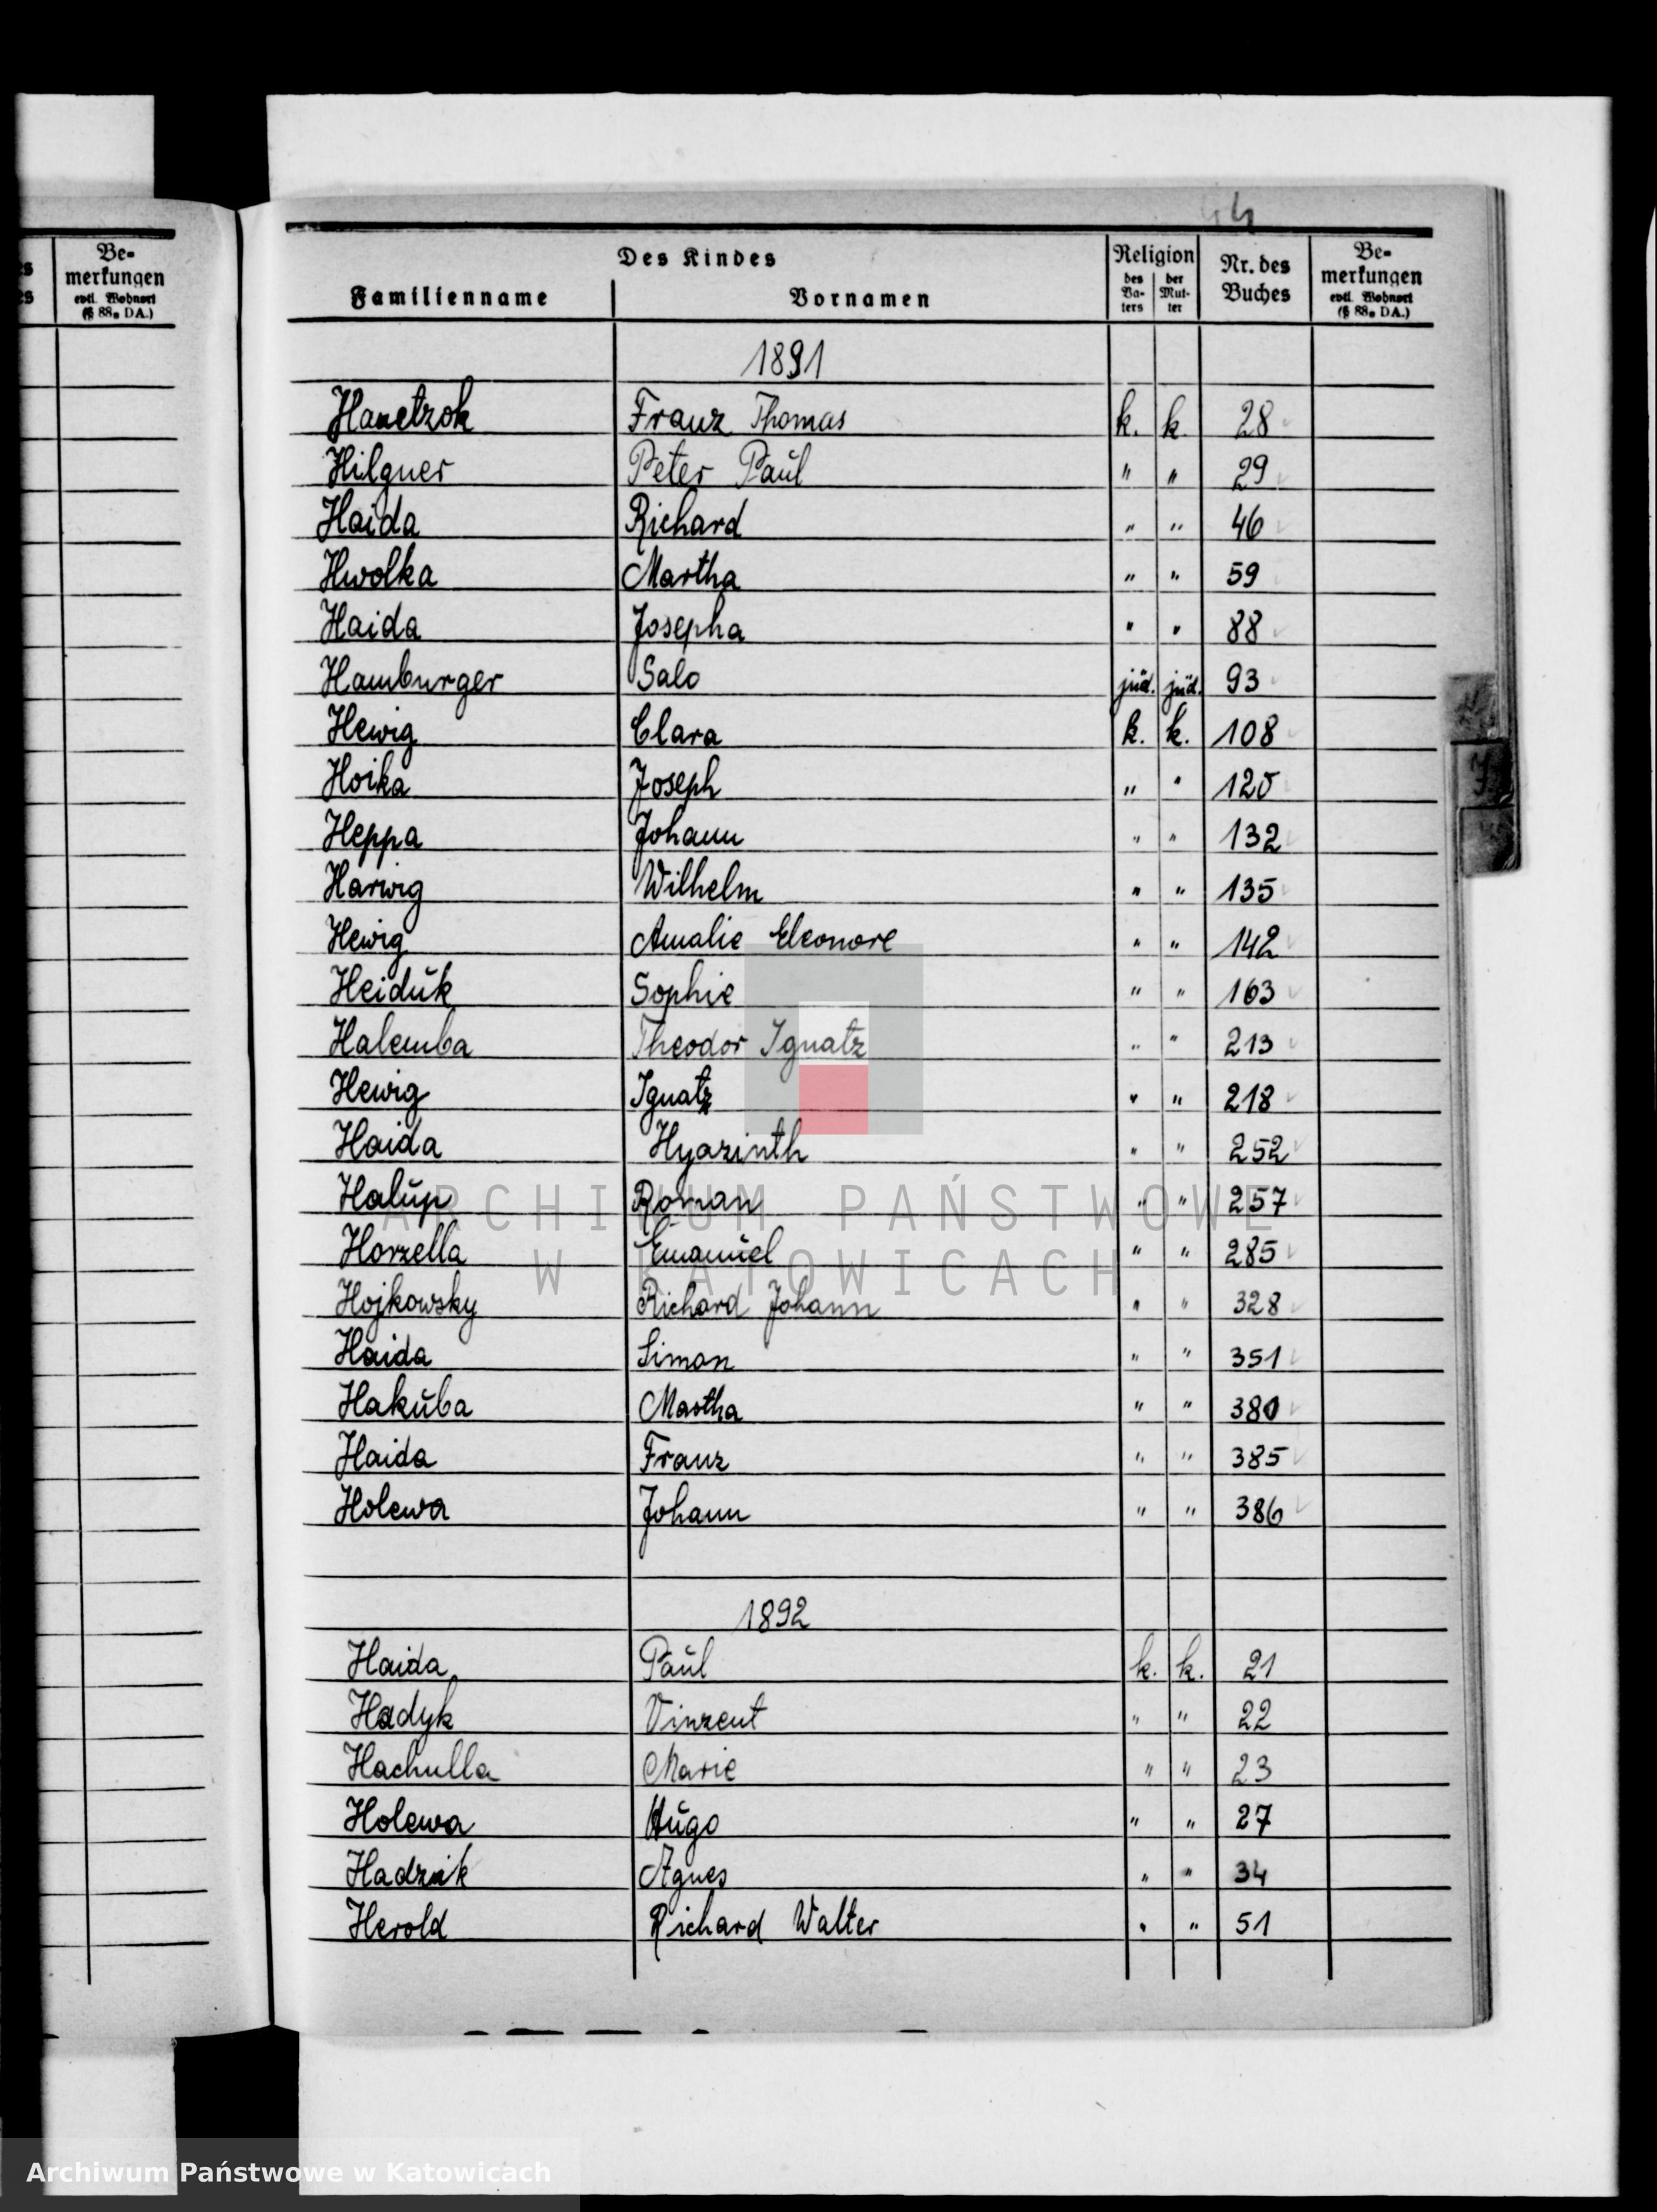 Be-
merkungen
evtl. Wohnort
(§ 88a DA.)
Des Kindes
Familienname Vornamen
Religion
des Va- ters der Mut- ter
Nr. des
Buches
Be-
merkungen
evtl. Wohnort
(§ 88a DA.)
1891
Hanetzok Franz Thomas k. k. 28
Hilgner Peter Paul " " 29
Haida Richard " " 46
Hwolka Martha " " 59
Haida Josepha " " 88
Hamburger Salo jüd. jüd. 93
Hewig Clara k. k. 108
Hoika Joseph " " 120
Heppa Johann " " 132
Harwig Wilhelm " " 135
Hewig Amalie Eleonore " " 142
Heiduk Sophie " " 163
Halemba Theodor Ignatz " " 213
Hewig Ignatz " " 218
Haida Hyazinth " " 252
Halup Roman " " 257
Horzella Emanuel " " 285
Hojkowsky Richard Johann " " 328
Haida Simon " " 351
Hakuba Martha " " 380
Haida Franz " " 385
Holewa Johann " " 386
1892
Haida Paul k. k. 21
Hadyk Vinzent " " 22
Hachulla Marie " " 23
Holewa Hugo " " 27
Hadzik Agnes " " 34
Herold Richard Walter " " 51
ARCHIWUM PAŃSTWOWE
W KATOWICACH
Archiwum Państwowe w Katowicach